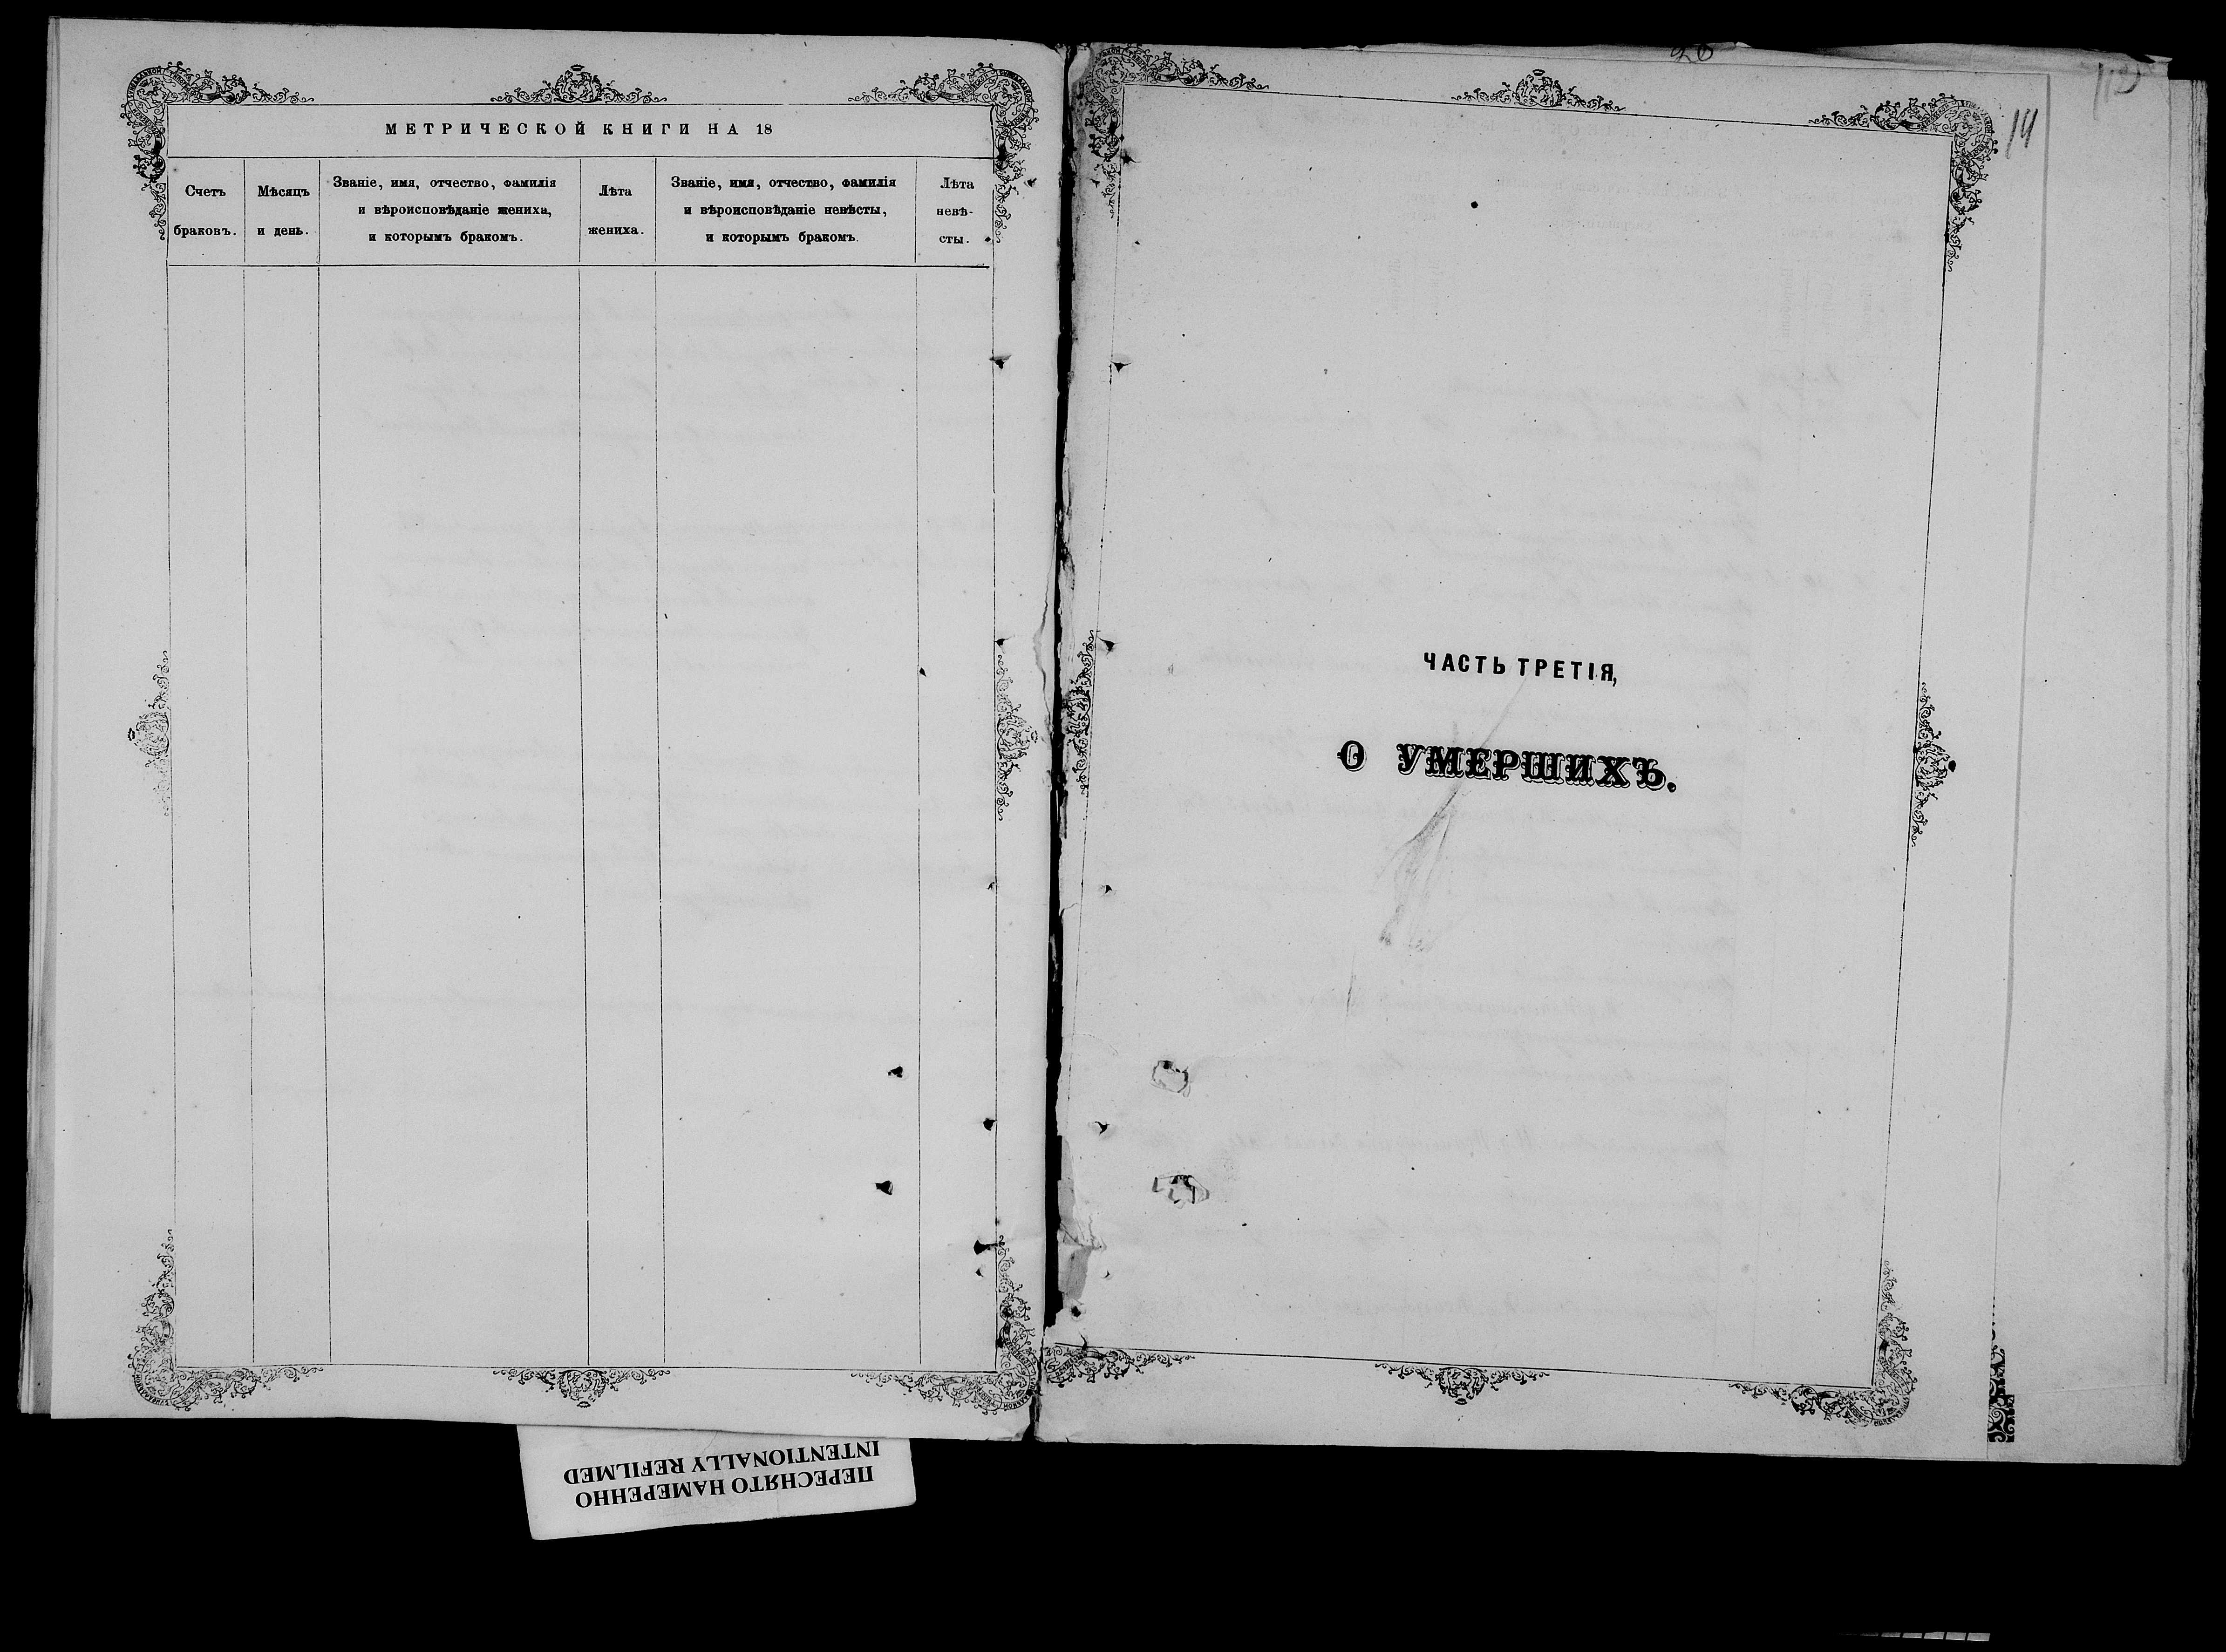 МЕТРИЧЕСКОЙ КНИГИ НА 18
Счетъ
браковъ.
Мѣсяцъ
и день.
Званіе, имя, отчество, фамилія
и вѣроисповѣданіе жениха,
и которымъ бракомъ.
Лѣта
жениха.
Званіе, имя, отчество, фамилія
и вѣроисповѣданіе невѣсты,
и которымъ бракомъ.
Лѣта
невѣ-
сты.
14
ЧАСТЬ ТРЕТІЯ,
О УМЕРШИХЪ.
ПЕРЕСНЯТО НАМЕРЕННО
INTENTIONALLY REFILMED